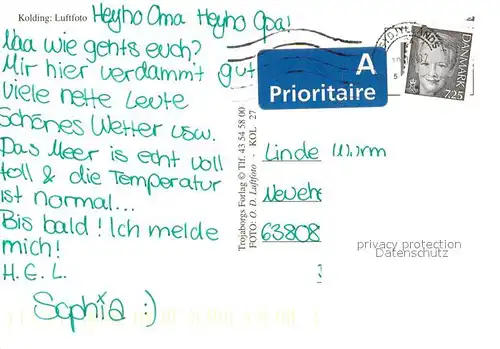 Kolding: Luftfoto
Heyho Oma Heyho Opa!
Naa wie gehts euch?
Mir hier verdammt gut
Viele nette Leute
Schönes Wetter usw.
Das Meer is echt voll
toll & die Temperatur
ist normal...
Bis bald! Ich melde
mich!
H.G.L.
Sophia :)
Trojaborgs Forlag © Tlf. 43 54 58 00
FOTO: O. D. Luftfoto - KOL 27
A
Prioritaire
SYDJYLLANDS
DANMARK
7.25
Linde Wurm
Neuehe
63808
privacy protection
Datenschutz